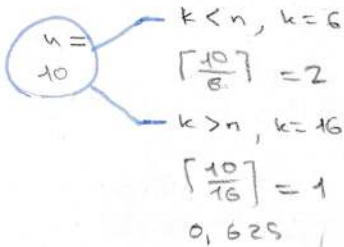 n =
10
k < n, k = 6
⌈10/6⌉ = 2
k > n, k = 16
⌈10/16⌉ = 1
0,625